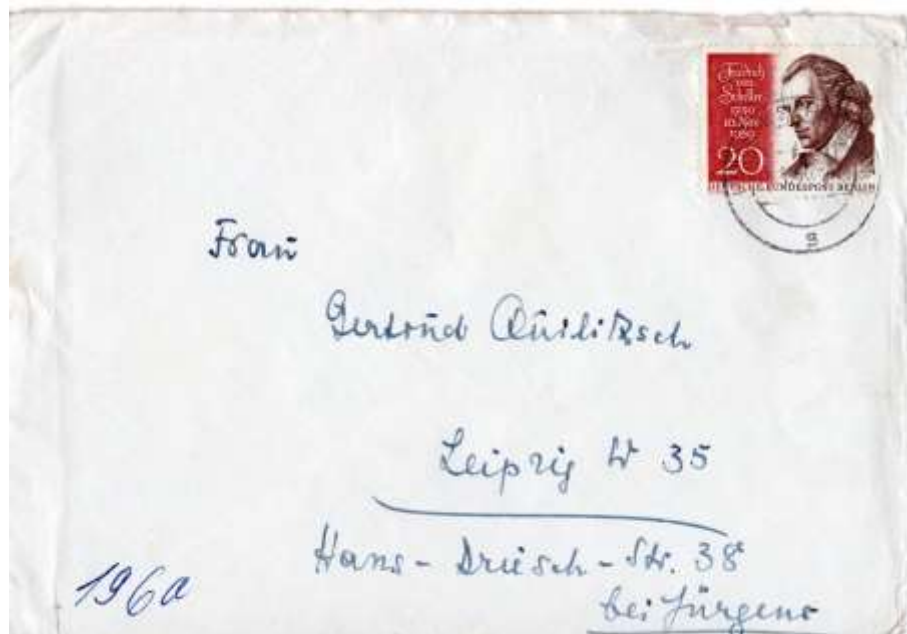 Friedrich
von
Schiller
1759
10. Nov.
1959
20
DEUTSCHE BUNDESPOST BERLIN
g
Frau
Gertrud Quilitzsch
Leipzig W 35
Hans-Driesch-Str. 38
bei Jürgens
1960